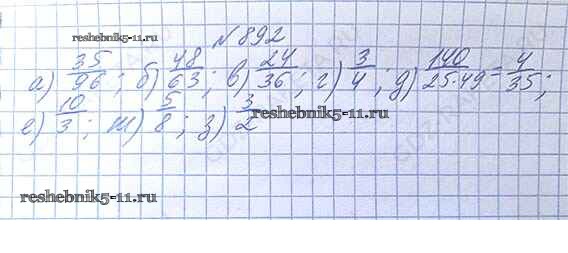 reshebnik5-11.ru № 892
а) 35/96; б) 48/63; в) 24/36; г) 3/4; д) 140/25·49 = 4/35;
е) 10/3; ж) 5/8; з) 3/2
reshebnik5-11.ru
reshebnik5-11.ru